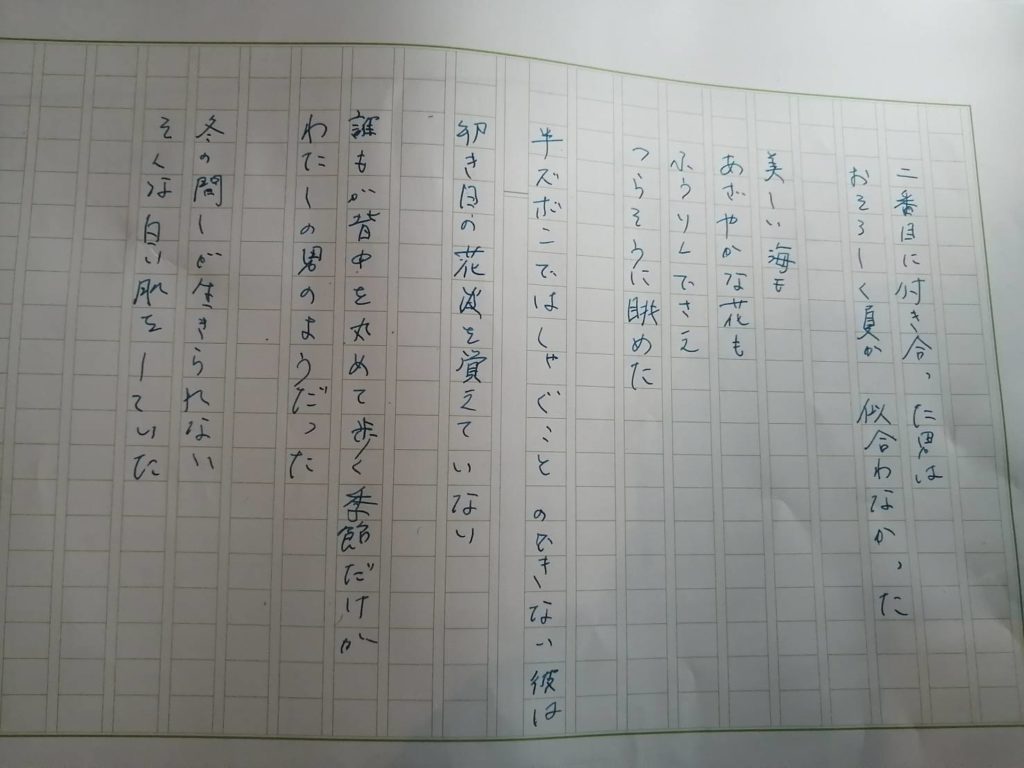 二番目に付き合った男は
おそろしく夏が 似合わなかった
美しい海も
あざやかな花も
ふうりんでさえ
つらそうに眺めた
半ズボンではしゃぐことのできない彼は
幼き日の花波を覚えていない
誰もが背中を丸めて歩く季節だけが
わたしの男のようだった
冬の間しか生きられない
そんな白い肌をしていた